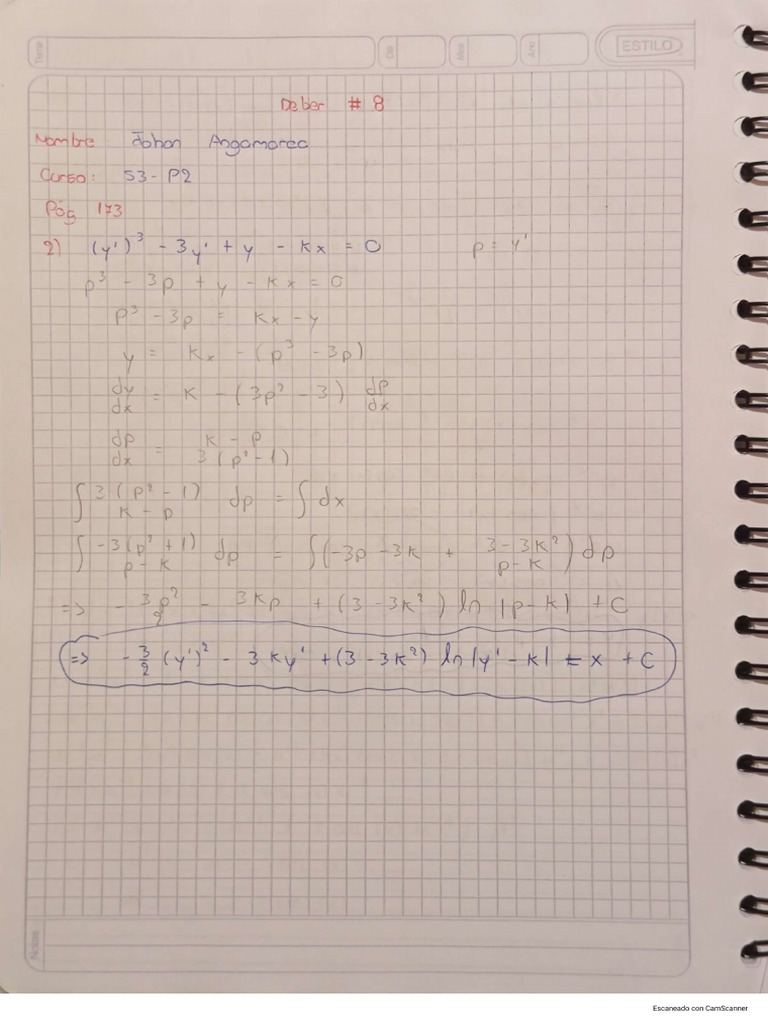 Tema
Día
Mes
Año
ESTILO
Deber # 8
Nombre Johan Angamarca
Curso: S3-P2
Pág 173
2) (y')³ - 3y' + y - kx = 0 p = y'
p³ - 3p + y - kx = 0
p³ - 3p = kx - y
y = kx - (p³ - 3p)
dy/dx = k - (3p² - 3) dp/dx
dp/dx = k - p / 3(p² - 1)
∫ 3(p² - 1) / k - p dp = ∫ dx
∫ -3(p² + 1) / p - k dp = ∫(-3p - 3k + 3 - 3k² / p - k) dp
=> - 3/2 p² - 3kp + (3 - 3k²) ln |p - k| + C
=> - 3/2 (y')² - 3ky' + (3 - 3k²) ln |y' - k| = x + C
Notas
Escaneado con CamScanner